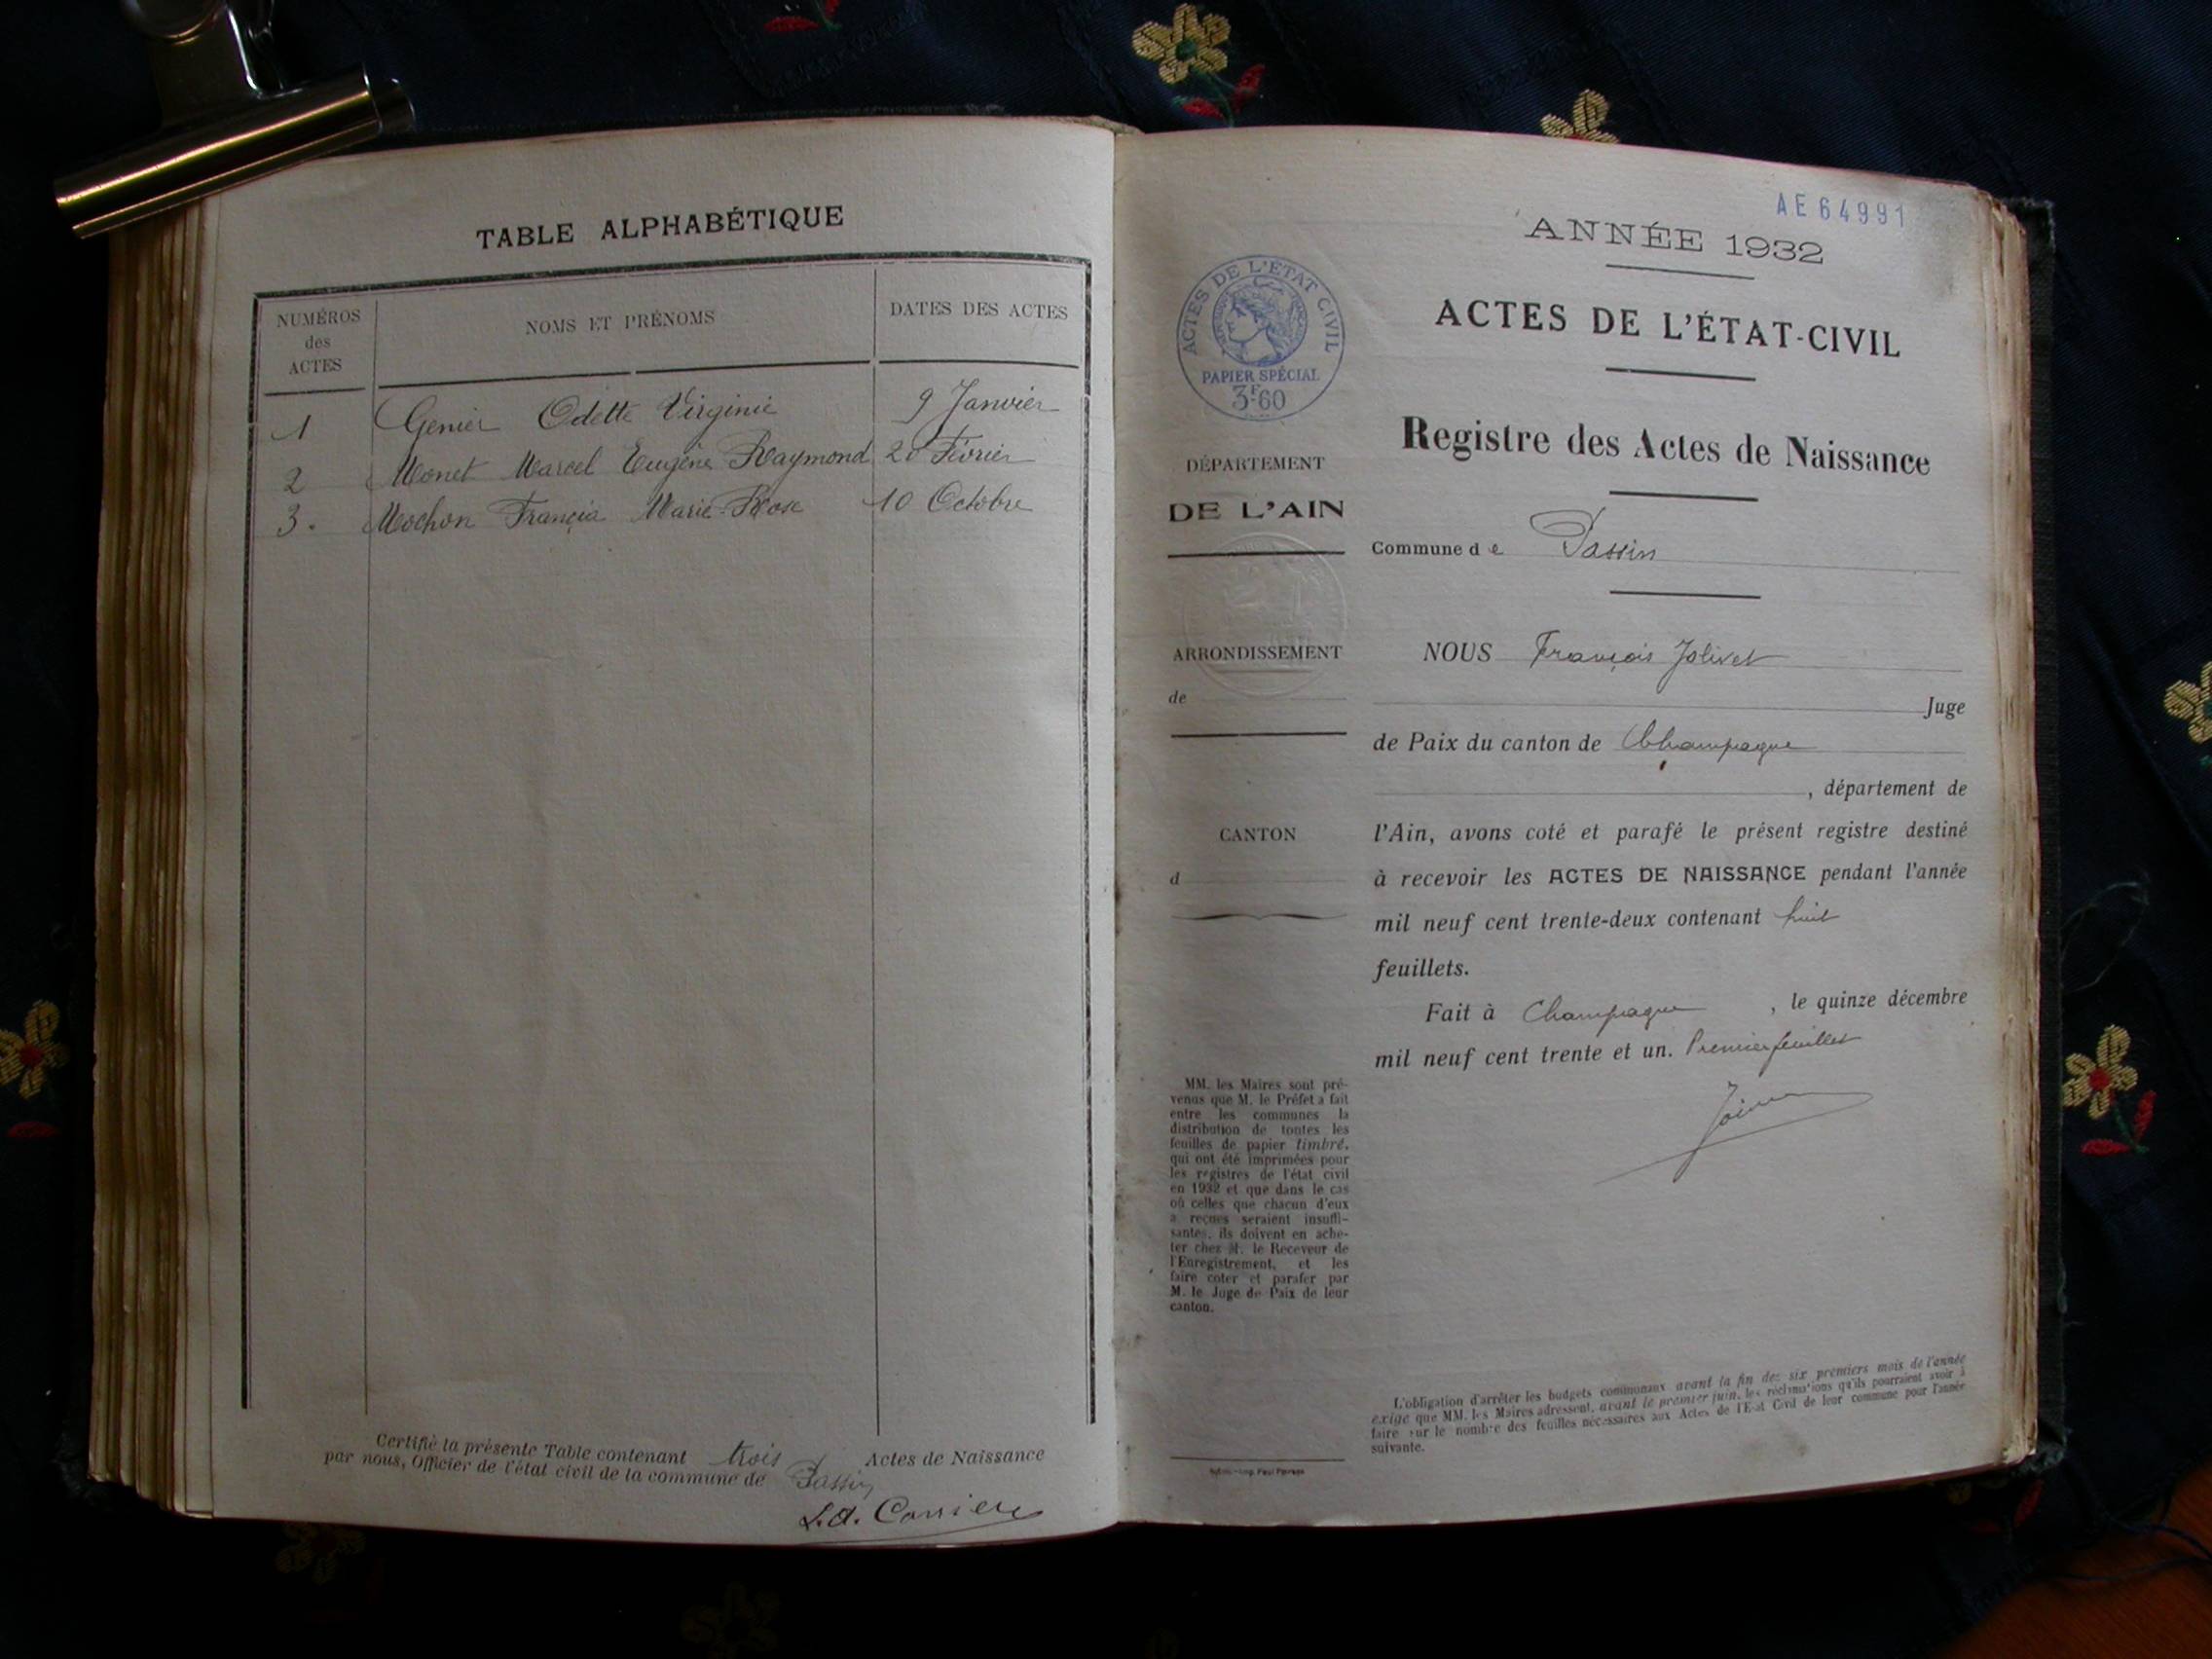 TABLE ALPHABÉTIQUE
NUMÉROS
des
ACTES
NOMS ET PRÉNOMS
DATES DES ACTES
1 Genier Odette Virginie 9 Janvier
2 Monet Marcel Eugène Raymond 20 Février
3. Mochon Francia Marie-Rose 10 Octobre
Certifié la présente Table contenant trois Actes de Naissance
par nous, Officier de l'état civil de la commune de Passin
AE64991
ANNÉE 1932
ACTES DE L'ÉTAT-CIVIL
Registre des Actes de Naissance
ACTES DE L'ETAT CIVIL
PAPIER SPÉCIAL
3F60
DÉPARTEMENT
DE L'AIN
ARRONDISSEMENT
de
CANTON
d
MM. les Maires sont pré-
venus que M. le Préfet a fait
entre les communes la
distribution de toutes les
feuilles de papier timbré,
qui ont été imprimées pour
les registres de l'état civil
en 1932 et que dans le cas
où celles que chacun d'eux
a reçues seraient insuffi-
santes, ils doivent en ache-
ter chez M. le Receveur de
l'Enregistrement, et les
faire coter et parafer par
M. le Juge de Paix de leur
canton.
Commune de Passin
NOUS François Jolivet
Juge
de Paix du canton de Champagne
, département de
l'Ain, avons coté et parafé le présent registre destiné
à recevoir les ACTES DE NAISSANCE pendant l'année
mil neuf cent trente-deux contenant huit
feuillets.
Fait à Champagne , le quinze décembre
mil neuf cent trente et un. Premier feuillet
L'obligation d'arrêter les budgets communaux avant la fin des six premiers mois de l'année
exige que MM. les Maires adressent, avant le premier juin, les réclamations qu'ils pourraient avoir à
faire sur le nombre des feuilles nécessaires aux Actes de l'Etat Civil de leur commune pour l'année
suivante.